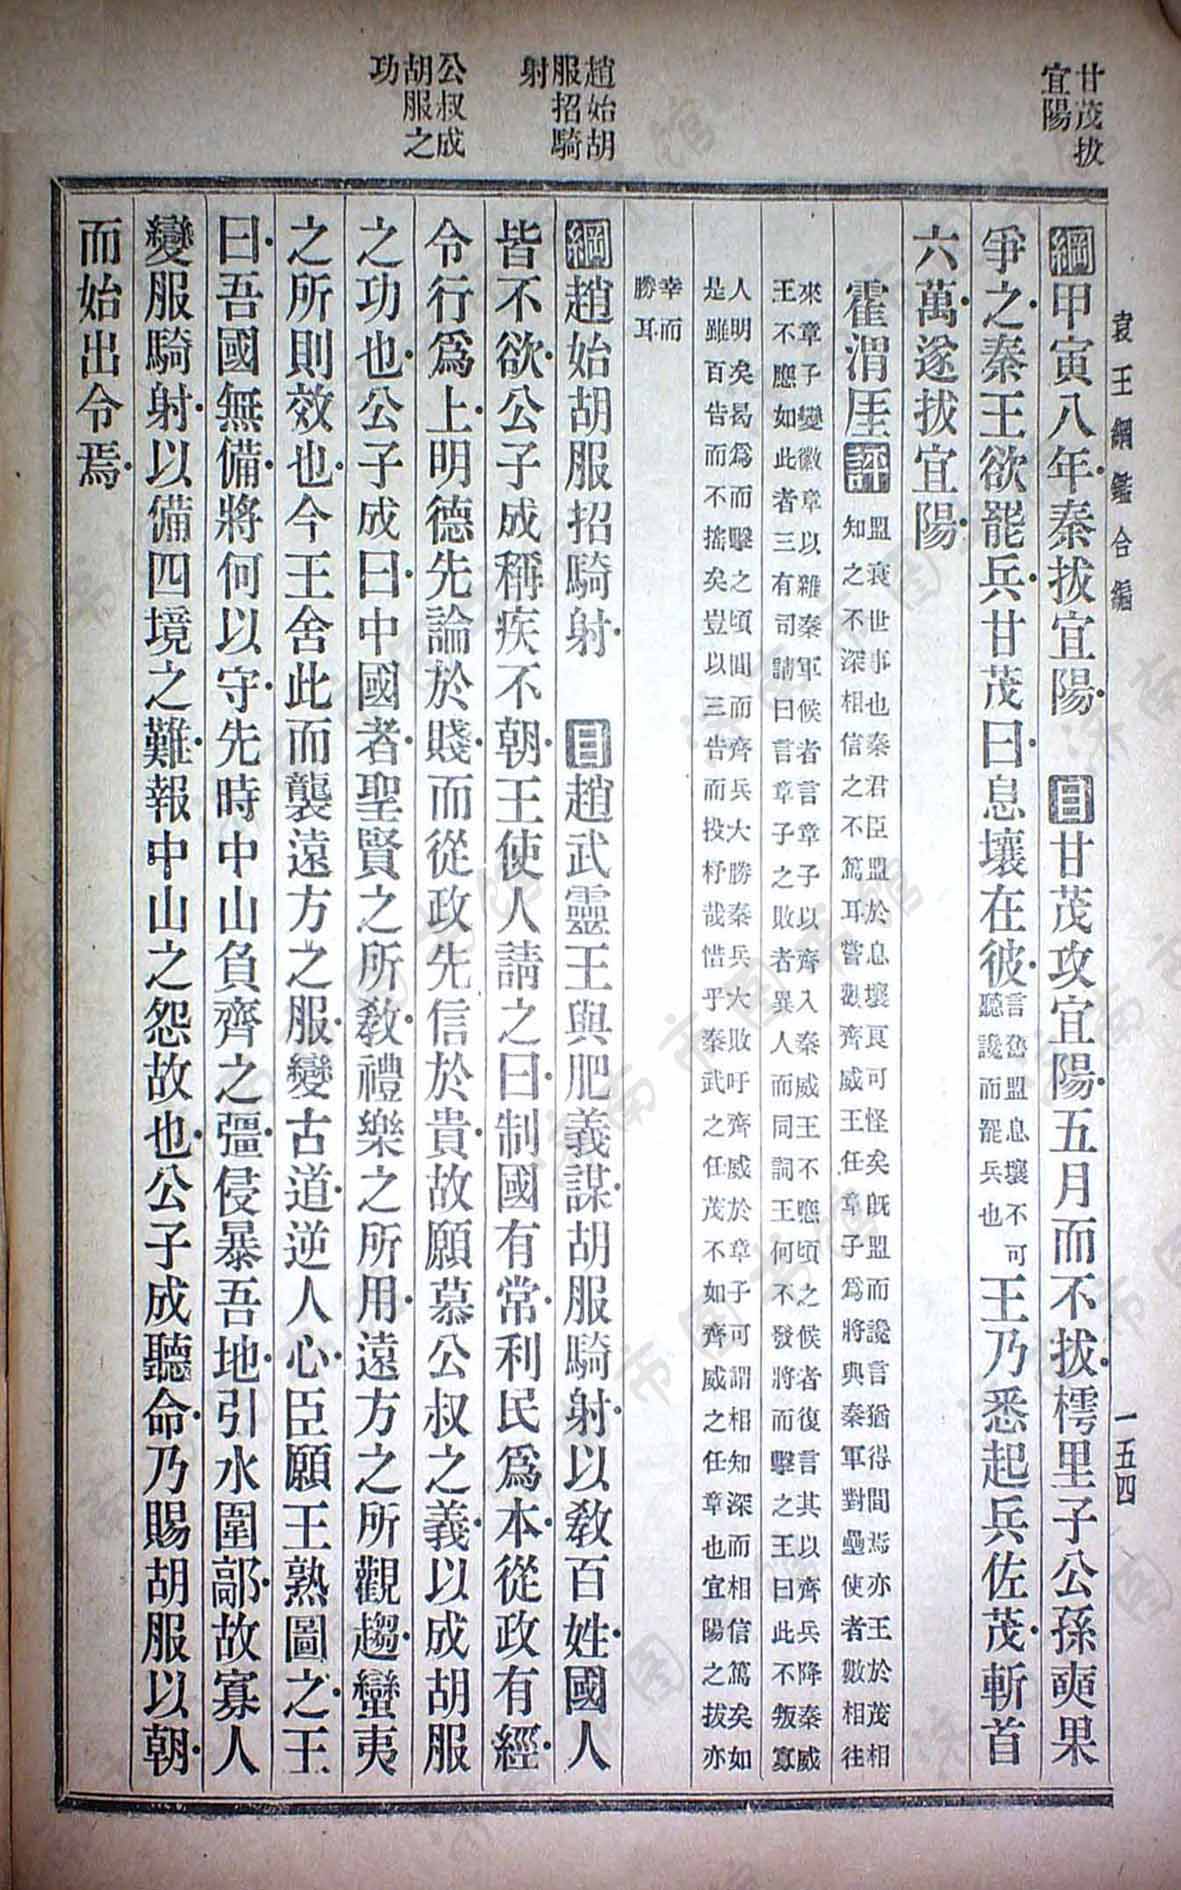 甘茂拔
宜陽
趙始胡
服招騎
射
公叔成
胡服之
功
袁王綱鑑合編
一五四
綱甲寅八年秦拔宜陽　目甘茂攻宜陽五月而不拔樗里子公孫奭果
爭之秦王欲罷兵甘茂曰息壤在彼言舊盟息壤不可聽讒而罷兵也王乃悉起兵佐茂斬首
六萬遂拔宜陽
霍渭厓評盟衰世事也秦君臣盟於息壤良可怪矣既盟而讒言猶得間焉亦王於茂相
知之不深相信之不篤耳嘗觀齊威王任章子爲將與秦軍對壘使者數相往
來章子變徽章以雜秦軍候者言章子以齊入秦威王不應頃之候者復言其以齊兵降秦威
王不應如此者三有司請曰言章子之敗者異人而同詞王何不發將而擊之王曰此不叛寡
人明矣曷爲而擊之頃間而齊兵大勝秦兵大敗吁齊威於章子可謂相知深而相信篤矣如
是雖百告而不搖矣豈以三告而投杼哉惜乎秦武之任茂不如齊威之任章也宜陽之拔亦
幸而
勝耳
綱趙始胡服招騎射　目趙武靈王與肥義謀胡服騎射以敎百姓國人
皆不欲公子成稱疾不朝王使人請之曰制國有常利民爲本從政有經
令行爲上明德先論於賤而從政先信於貴故願慕公叔之義以成胡服
之功也公子成曰中國者聖賢之所敎禮樂之所用遠方之所觀趨蠻夷
之所則效也今王舍此而襲遠方之服變古道逆人心臣願王熟圖之王
曰吾國無備將何以守先時中山負齊之彊侵暴吾地引水圍鄗故寡人
變服騎射以備四境之難報中山之怨故也公子成聽命乃賜胡服以朝
而始出令焉